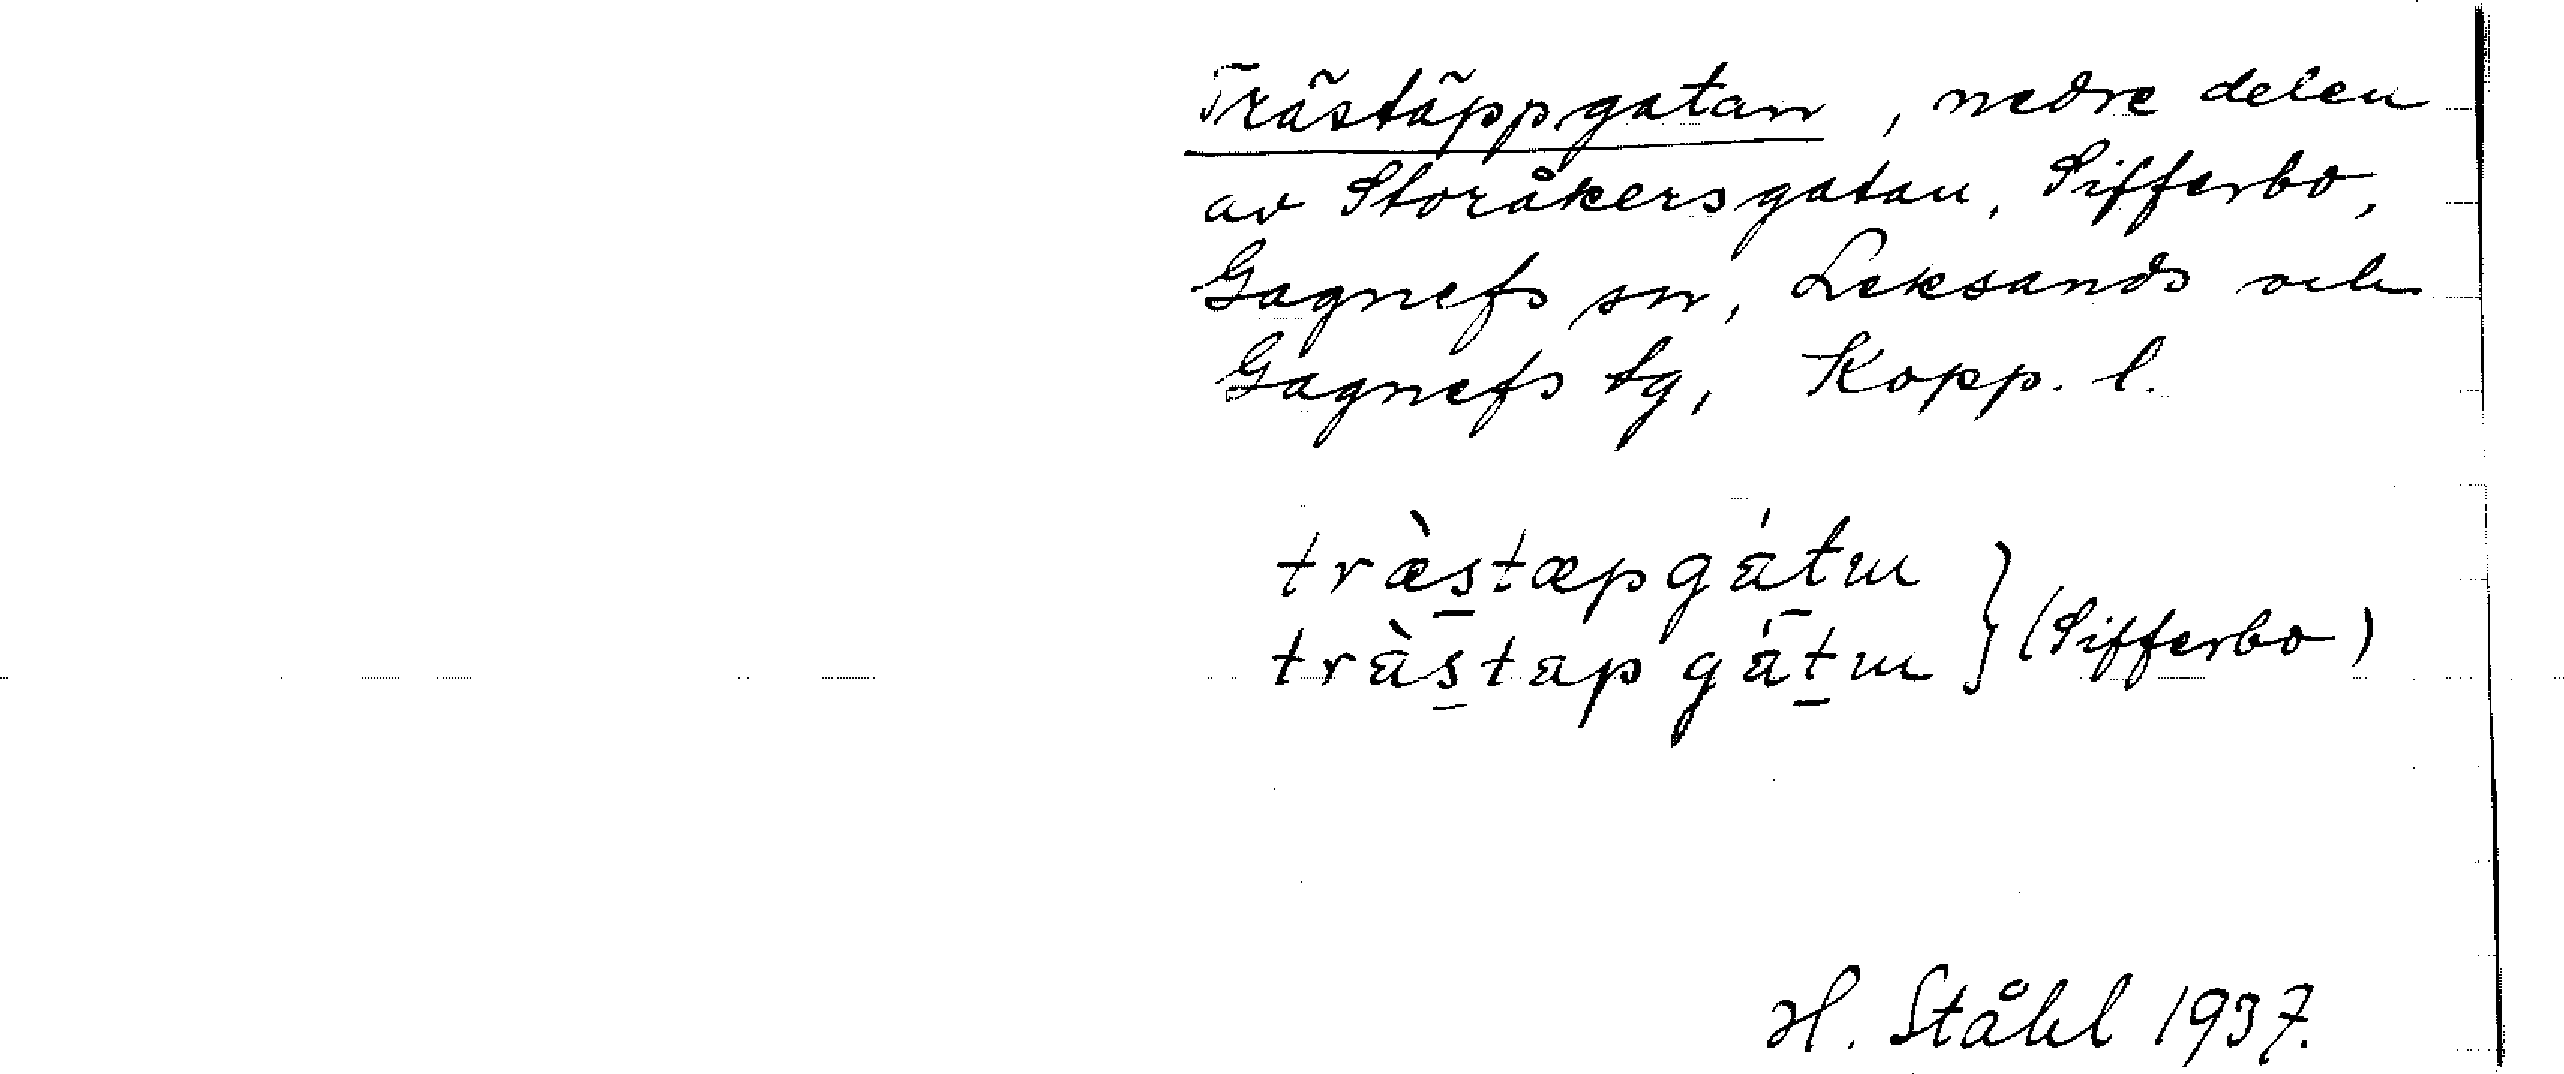 Trästäppgatan, nedre delen
av Storåkersgatan, Sifferbo,
Gagnefs sn, Leksands och
Gagnefs tg, Kopp. l.
træ̀s̲tæpgát̲ɯ
tràs̲tapgát̲ɯ } (Sifferbo)
H. Ståhl 1937.